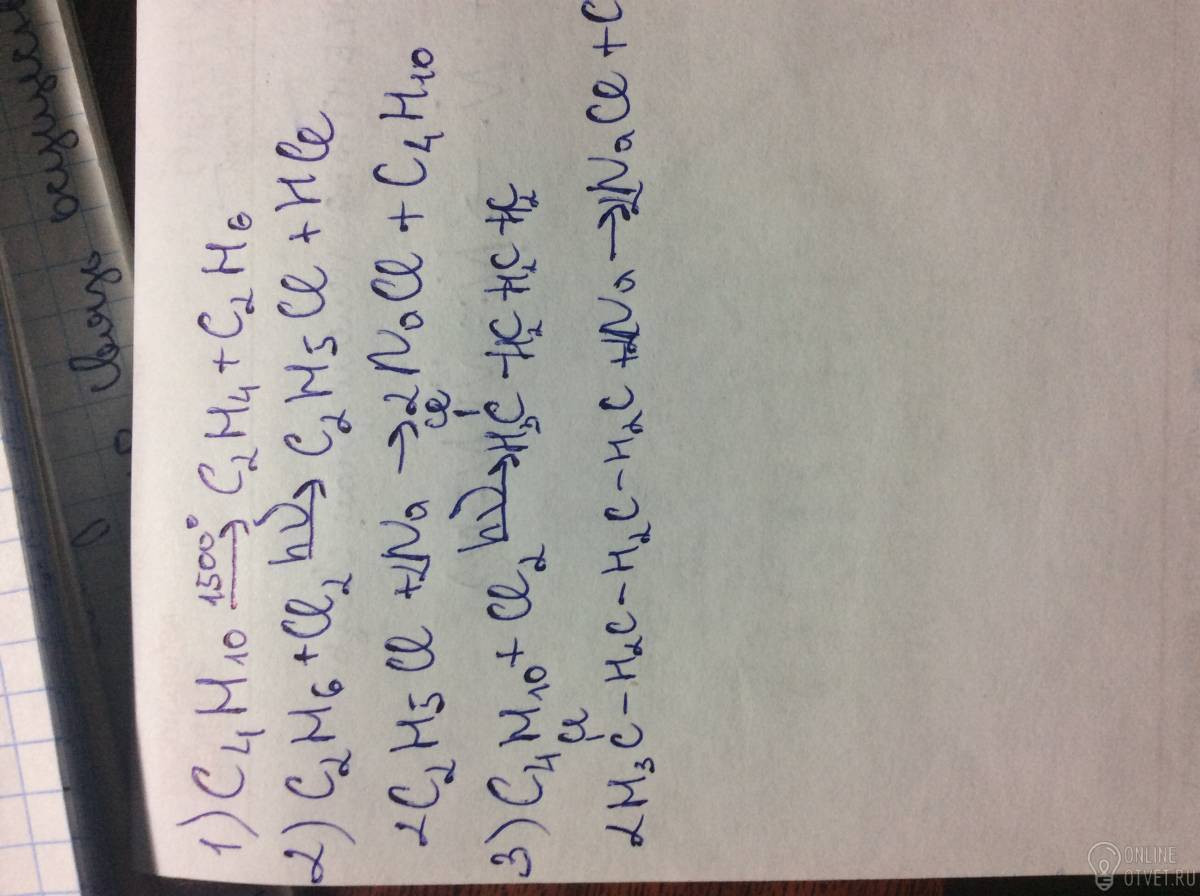 1) C₄H₁₀ 1500° → C₂H₄ + C₂H₆
2) C₂H₆ + Cl₂ hν → C₂H₅Cl + HCl
2C₂H₅Cl + 2Na → 2NaCl + C₄H₁₀
Cl
3) C₄H₁₀ + Cl₂ hν → H₃C - H₂C - H₂C - H₂
Cl
2H₃C - H₂C - H₂C - H₂C + 2Na → 2NaCl + C
Связь
ONLINE
OTVET.RU